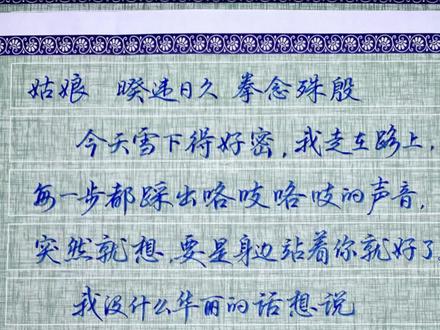 姑娘 暌违日久 拳念殊殷
今天雪下得好密,我走在路上,
每一步都踩出咯吱咯吱的声音,
突然就想,要是身边站着你就好了
我没什么华丽的话想说